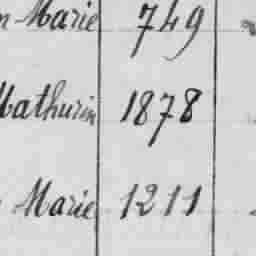 n Marie 749
Mathurin 1878
Marie 1211